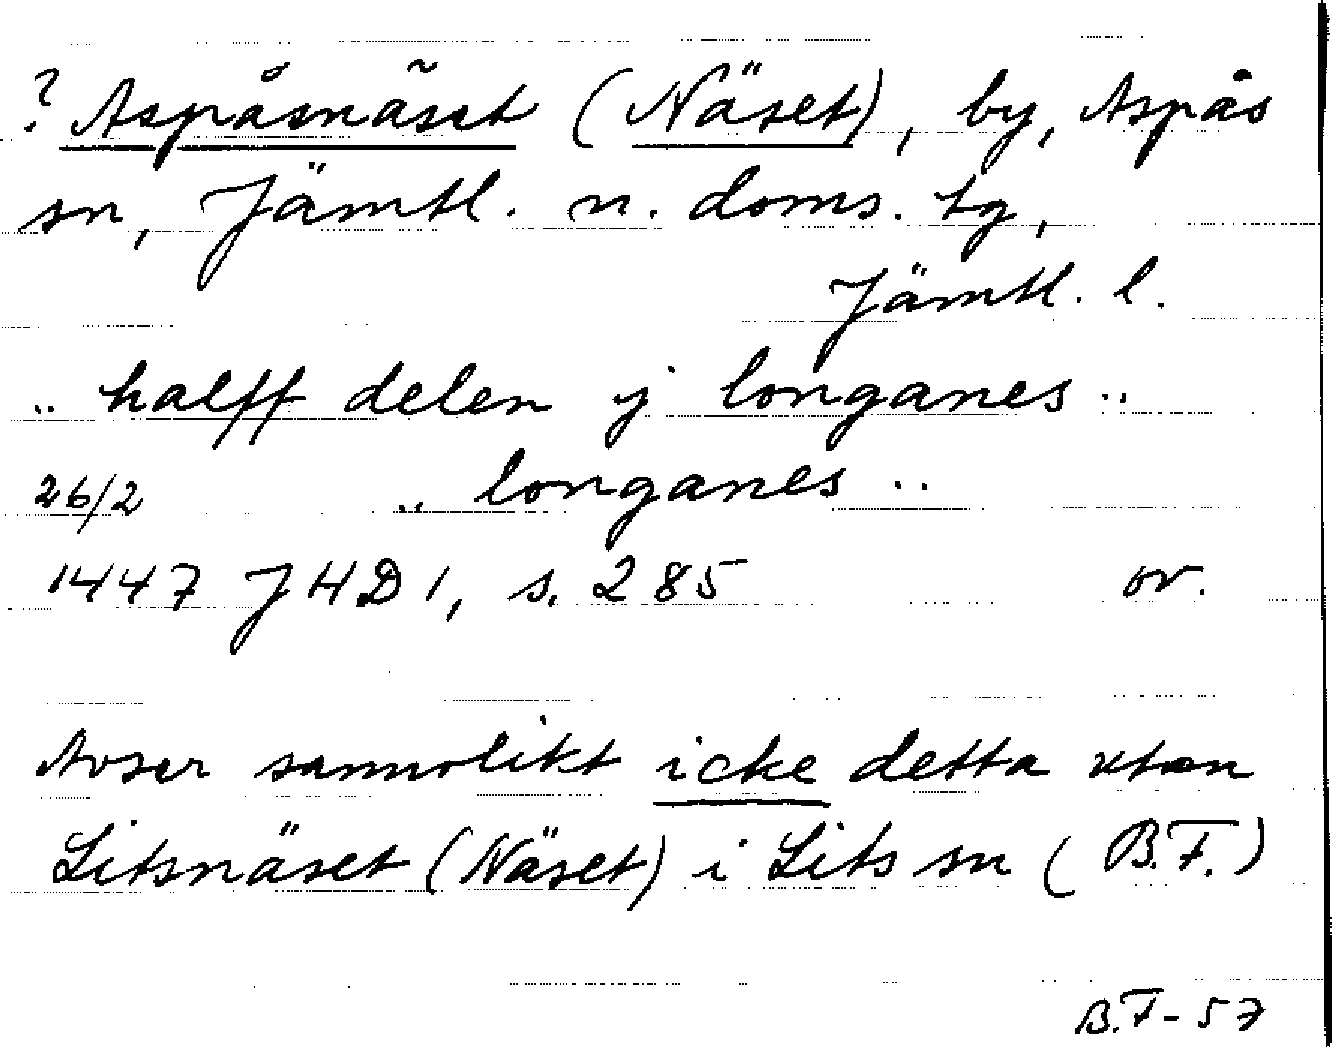 ? Aspåsnäset (Näset), by, Aspås
sn, Jämtl. n. doms. tg,
Jämtl. l.
.. halff delen y longanes ..
26/2 .. longanes ..
1447 JHD 1, s. 285 or.
Avser sannolikt icke detta utan
Litsnäset (Näset) i Lits sn (B.F.)
B.F-57